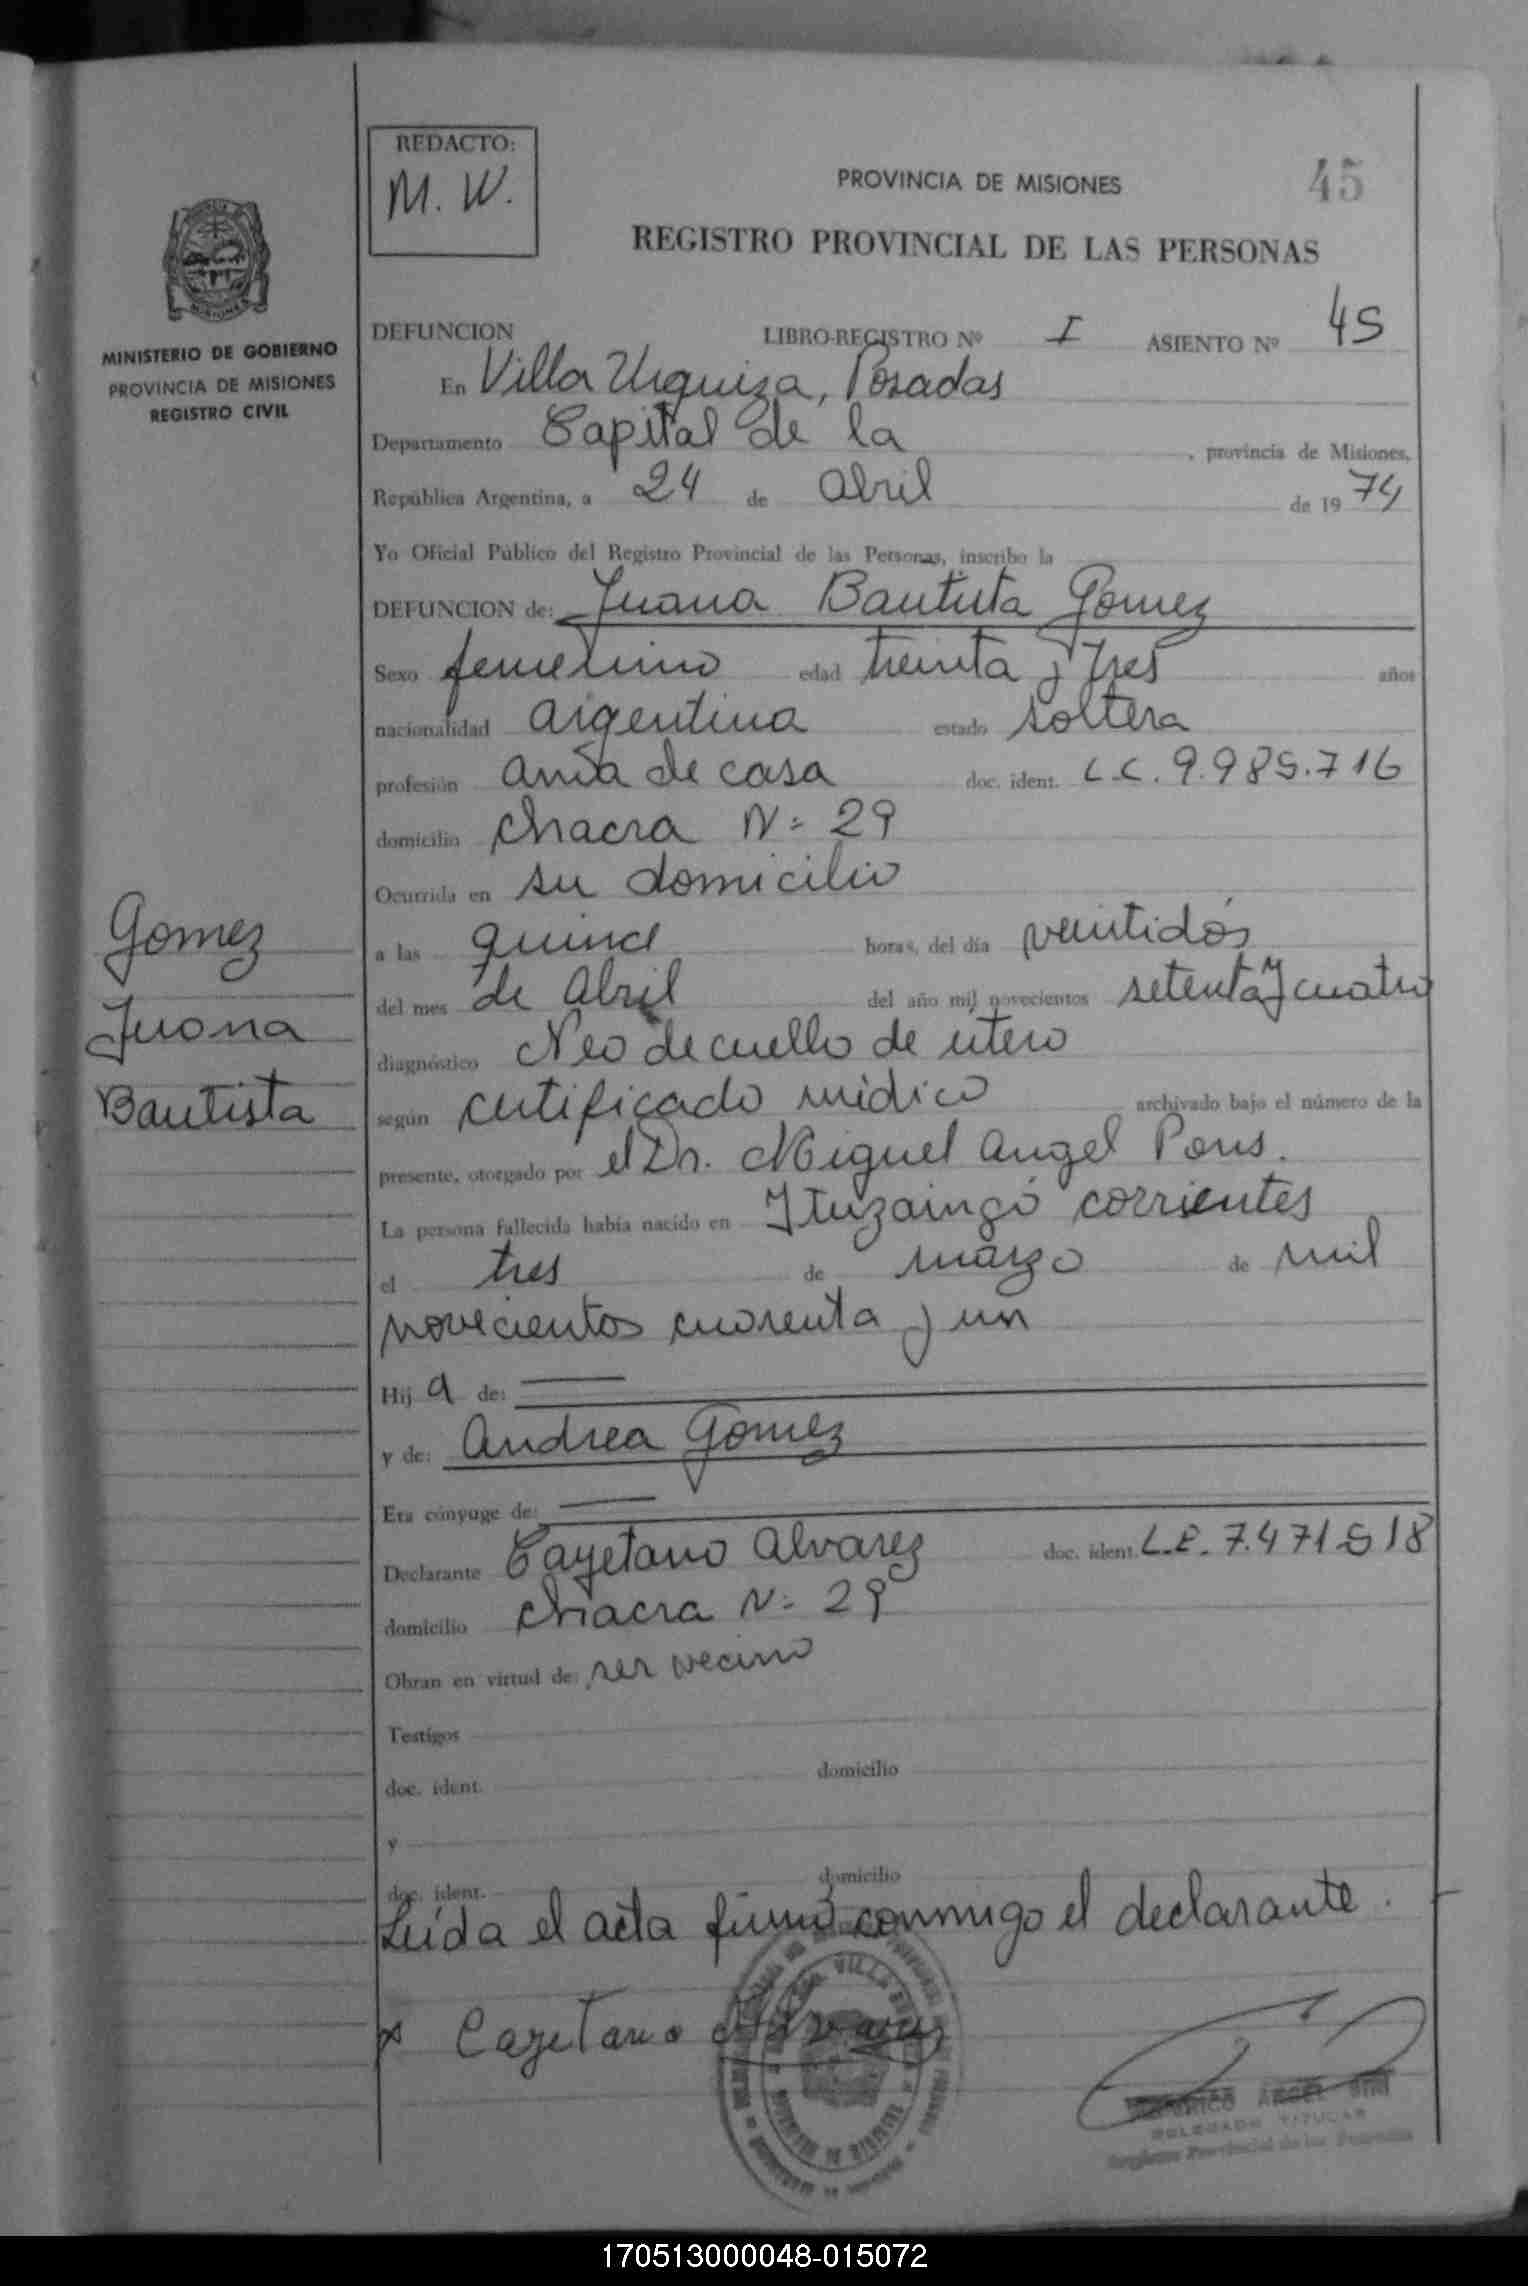 REDACTO:
M. W.
PROVINCIA DE MISIONES
45
REGISTRO PROVINCIAL DE LAS PERSONAS
MINISTERIO DE GOBIERNO
PROVINCIA DE MISIONES
REGISTRO CIVIL
DEFUNCION LIBRO-REGISTRO Nº I ASIENTO Nº 45
En Villa Urquiza, Posadas
Departamento Capital de la , provincia de Misiones,
República Argentina, a 24 de Abril de 1974
Yo Oficial Público del Registro Provincial de las Personas, inscribo la
DEFUNCION de: Juana Bautista Gomez
Sexo femenino edad treinta y tres años
nacionalidad argentina estado soltera
profesión ama de casa doc. ident. L.C. 9.985.716
domicilio chacra N= 29
Ocurrida en su domicilio
Gomez
Juana
Bautista
a las quince horas, del día veintidós
del mes de Abril del año mil novecientos setenta y cuatro
diagnóstico Neo de cuello de utero
según certificado médico archivado bajo el número de la
presente, otorgado por el Dr. Miguel Angel Pons.
La persona fallecida había nacido en Ituzaingó corrientes
el tres de marzo de mil
novecientos cuarenta y un
Hij a de: ——
y de: Andrea Gomez
Era cónyuge de: ——
Declarante Cayetano Alvarez doc. ident. L.E. 7.471518
domicilio chacra N= 29
Obran en virtud de: ser vecino
Testigos
doc. ident. domicilio
y
doc. ident. domicilio
Leída el acta firmó conmigo el declarante.
x Cayetano Alvarez
ANGEL
DELEGADO TITULAR
Registro Provincial de las Personas
170513000048-015072